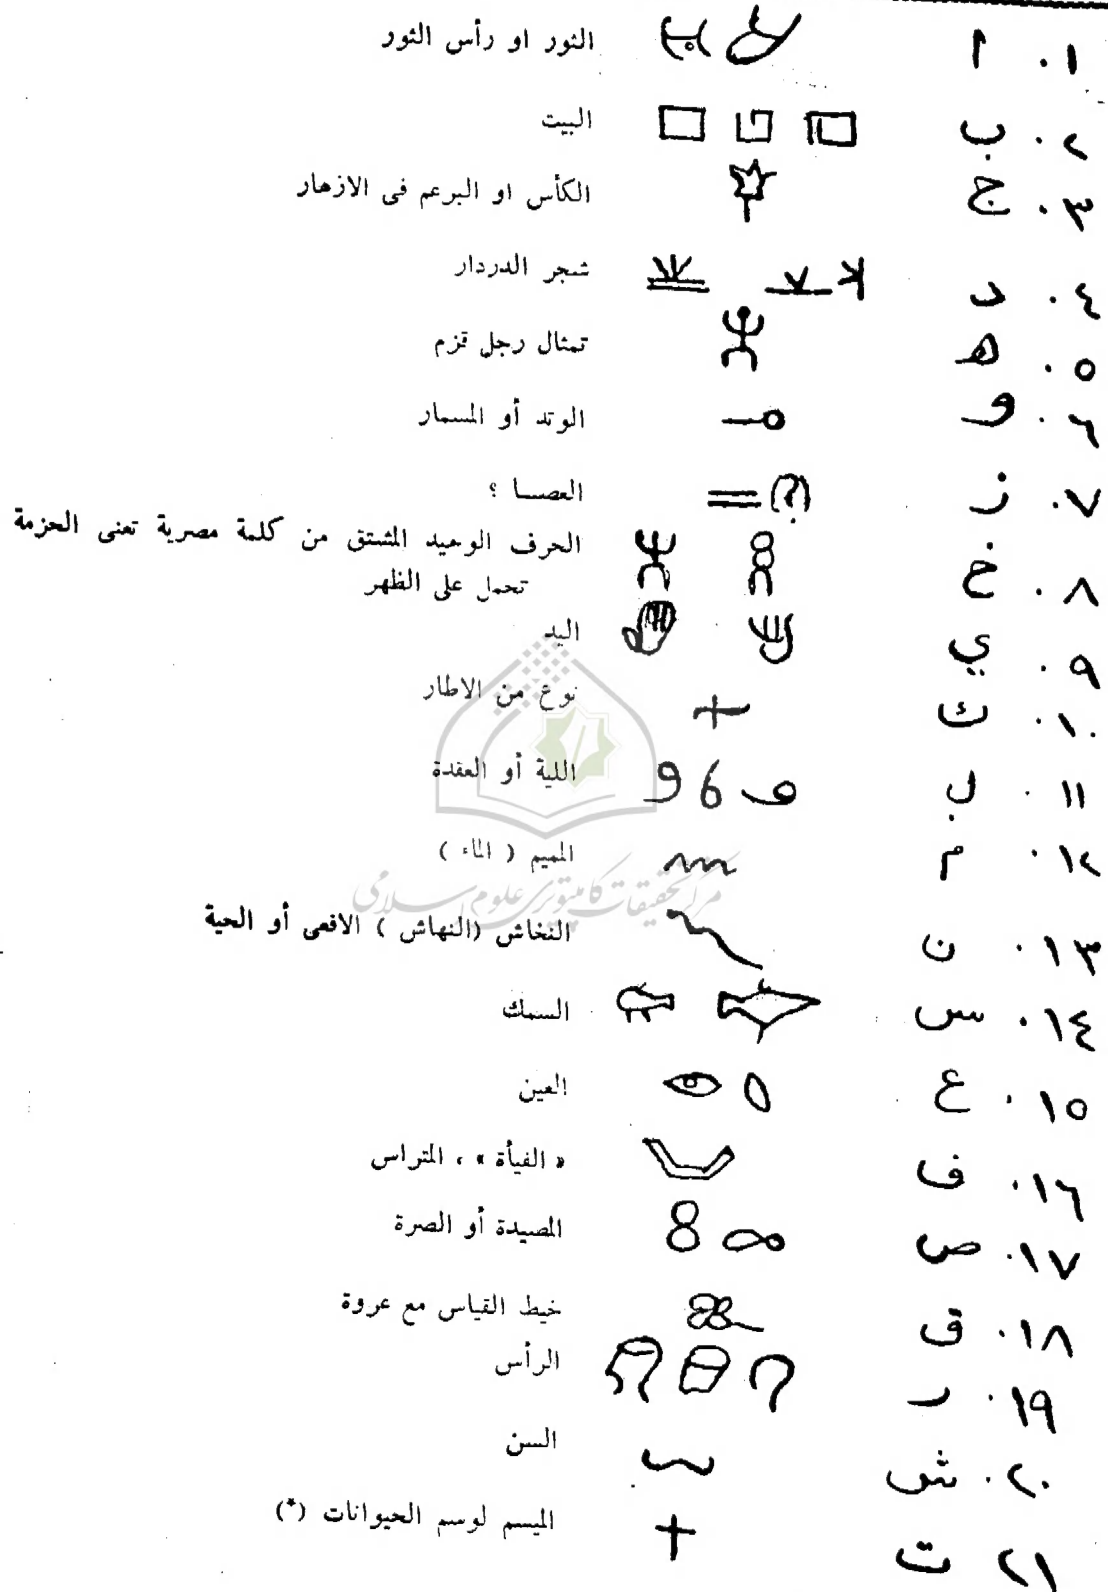 ١. ا الثور او رأس الثور
٢. ب البيت
٣. ج الكأس او البرعم فى الازهار
٤. د شجر الدردار
٥. ه تمثال رجل قزم
٦. و الوتد أو المسمار
٧. ز (؟) العصا ؟
٨. خ الحرف الوحيد المشتق من كلمة مصرية تعنى الحزمة
تحمل على الظهر
٩. ي اليد
١٠. ك نوع من الاطار
١١. ل اللية أو العقدة
١٢. م الميم ( الماء )
١٣. ن النخاش (النهاش ) الافعى أو الحية
١٤. س السمك
١٥. ع العين
١٦. ف « الفيأة » ، المتراس
١٧. ص المصيدة أو الصرة
١٨. ق خيط القياس مع عروة
١٩. ر الرأس
٢٠. ش السن
٢١ ت الميسم لوسم الحيوانات (*)
مركز تحقيقات كامپيوتري علوم اسلامى